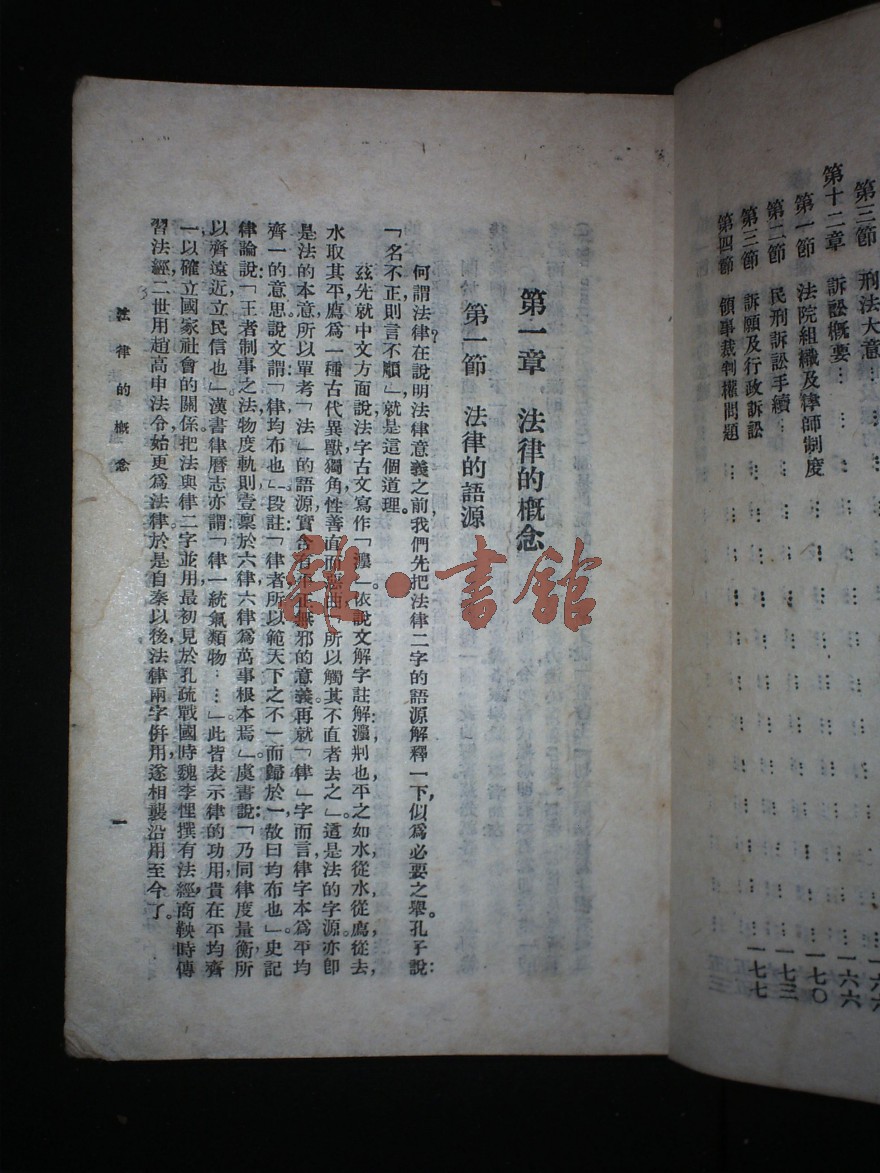 第三節　刑法大意………
第十二章　訴訟概要……………一六六
第一節　法院組織及律師制度……………一七〇
第二節　民刑訴訟手續……………一七三
第三節　訴願及行政訴訟……………一七七
第四節　領事裁判權問題
第一章　法律的概念
第一節　法律的語源
何謂法律？在說明法律意義之前，我們先把法律二字的語源解釋一下，似爲必要之舉。孔子說：
「名不正則言不順」就是這個道理。
茲先就中文方面說，法字古文寫作「灋」。依說文解字註解：灋，刑也，平之如水，從水，從廌，從去，
水取其平，廌爲一種古代異獸，獨角，性善直而惡曲，「所以觸其不直者去之」。這是法的字源，亦卽
是法的本意。所以單考「法」的語源，實含有公正無邪的意義。再就「律」字而言，律字本爲平均
齊一的意思，說文謂：「律均布也」，段註「律者所以範天下之不一而歸於一，故曰均布也。」史記
律論說：「王者制事之法，物度軌則，壹稟於六律，六律爲萬事根本焉。」虞書說：「乃同律度量衡，所
以齊遠近立民信也」，漢書律曆志亦謂：「律一統氣類物……」此皆表示律的功用，貴在平均齊
一，以確立國家社會的關係。把法與律二字並用，最初見於孔疏，戰國時，魏李悝撰有法經，商鞅時傳
習法經，二世用趙高申法令，始更爲法律，於是自秦以後，法律兩字併用，遂相襲沿用至今了。
法律的概念
一
雜·書館